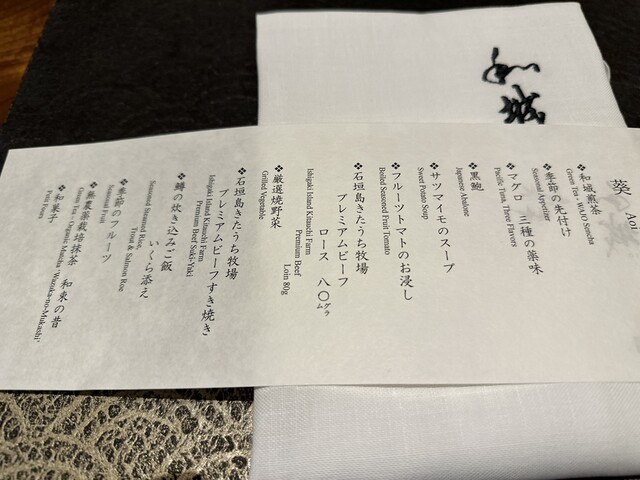 和城
葵
Aoi
❖和城煎茶
Green Tea - WAJO Sencha
❖季節の先付け
Seasonal Appetizer
❖マグロ 三種の薬味
Pacific Tuna, Three Flavors
❖黒鮑
Japanese Abalone
❖サツマイモのスープ
Sweet Potato Soup
❖フルーツトマトのお浸し
Boiled Seasoned Fruit Tomato
❖石垣島きたうち牧場
プレミアムビーフ
ロース 八〇グラム
Ishigaki Island Kitauchi Farm
Premium Beef
Loin 80g
❖厳選焼野菜
Grilled Vegetable
❖石垣島きたうち牧場
プレミアムビーフすき焼き
Ishigaki Island Kitauchi Farm
Premium Beef Suki-Yaki
❖鱒の炊き込みご飯
いくら添え
Seasoned Steamed Rice,
Trout & Salmon Roe
❖季節のフルーツ
Seasonal Fruit
❖無農薬栽培抹茶 和束の昔
Green Tea - Organic Matcha "Wazuka-no-Mukashi"
❖和菓子
Petit Fours